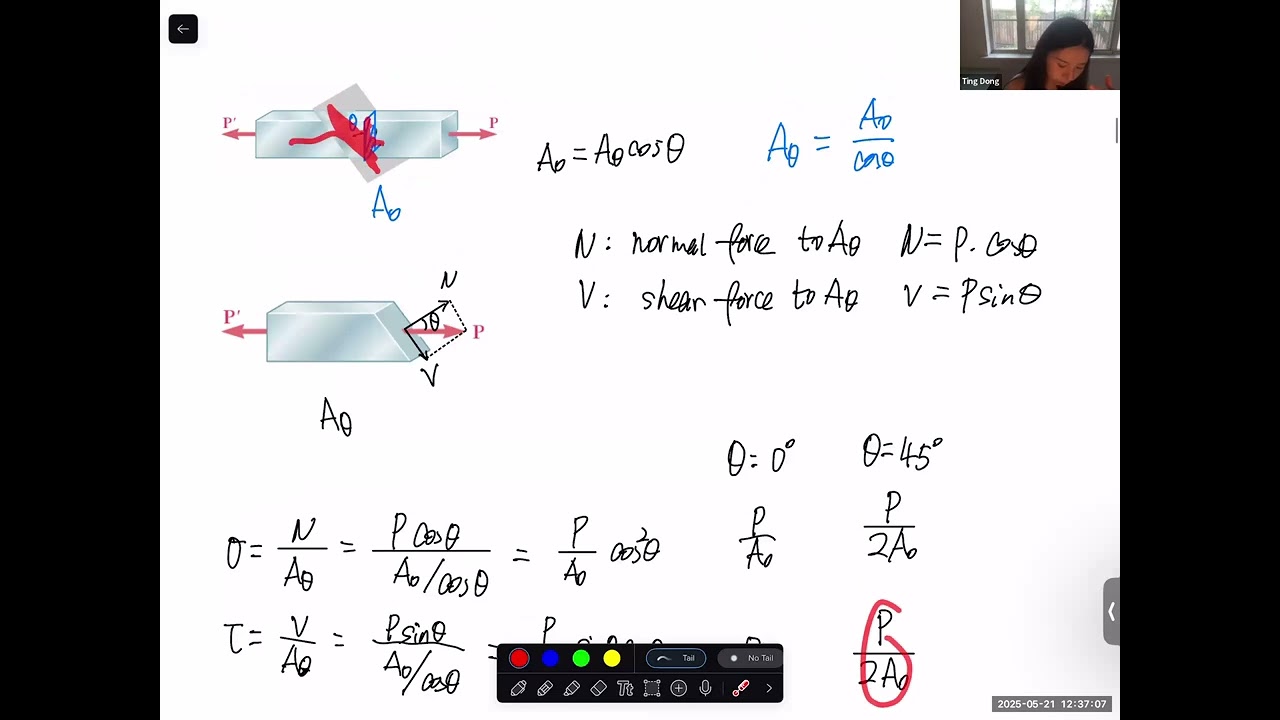 Ting Dong
P' P
θ
A₀
A₀ = Aθ cosθ
Aθ = A₀ / cosθ
N: normal force to Aθ N = P. cosθ
V: shear force to Aθ V = P sinθ
P' N θ P V
Aθ
θ = 0° θ = 45°
σ = N / Aθ = P cosθ / A₀/cosθ = P / A₀ cos²θ P / A₀ P / 2A₀
τ = V / Aθ = P sinθ / A₀/cosθ = P P / 2A₀
Tail No Tail
2025-05-21 12:37:07